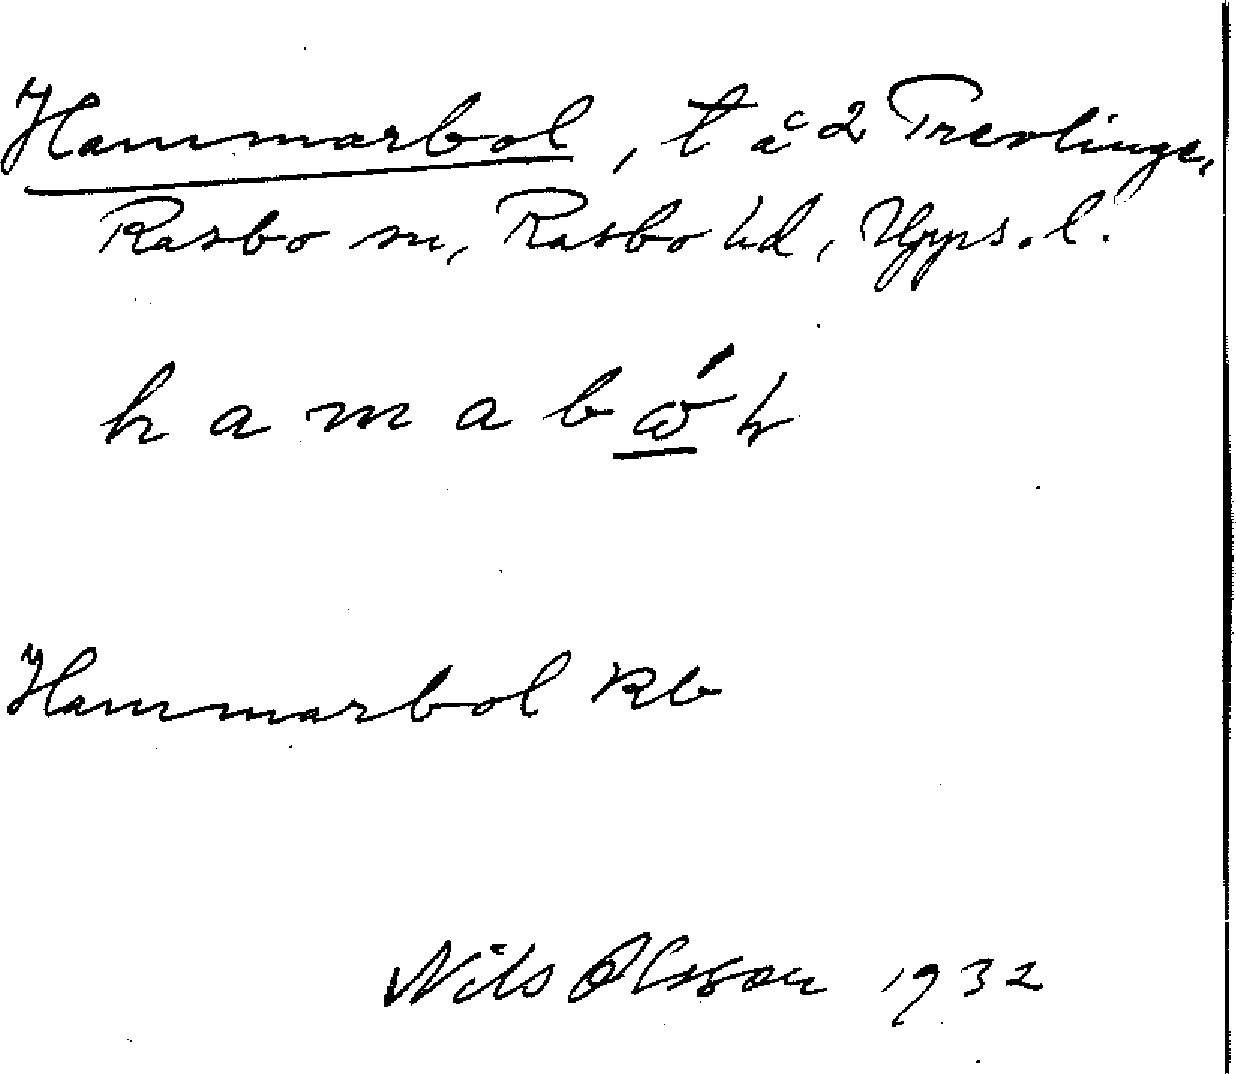 Hammarbol, t å 2 Trevlinge,
Rasbo sn, Rasbo hd, Upps. l.
hamabώɫ
Hammarbol kb
Nils Olsson 1932